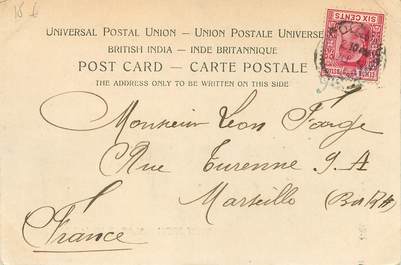 15 €
UNIVERSAL POSTAL UNION – UNION POSTALE UNIVERSE
BRITISH INDIA – INDE BRITANNIQUE
POST CARD – CARTE POSTALE
THE ADDRESS ONLY TO BE WRITTEN ON THIS SIDE
SIX CENTS
Monsieur Leon Farge
Rue Turenne 9 A
Marseille
France